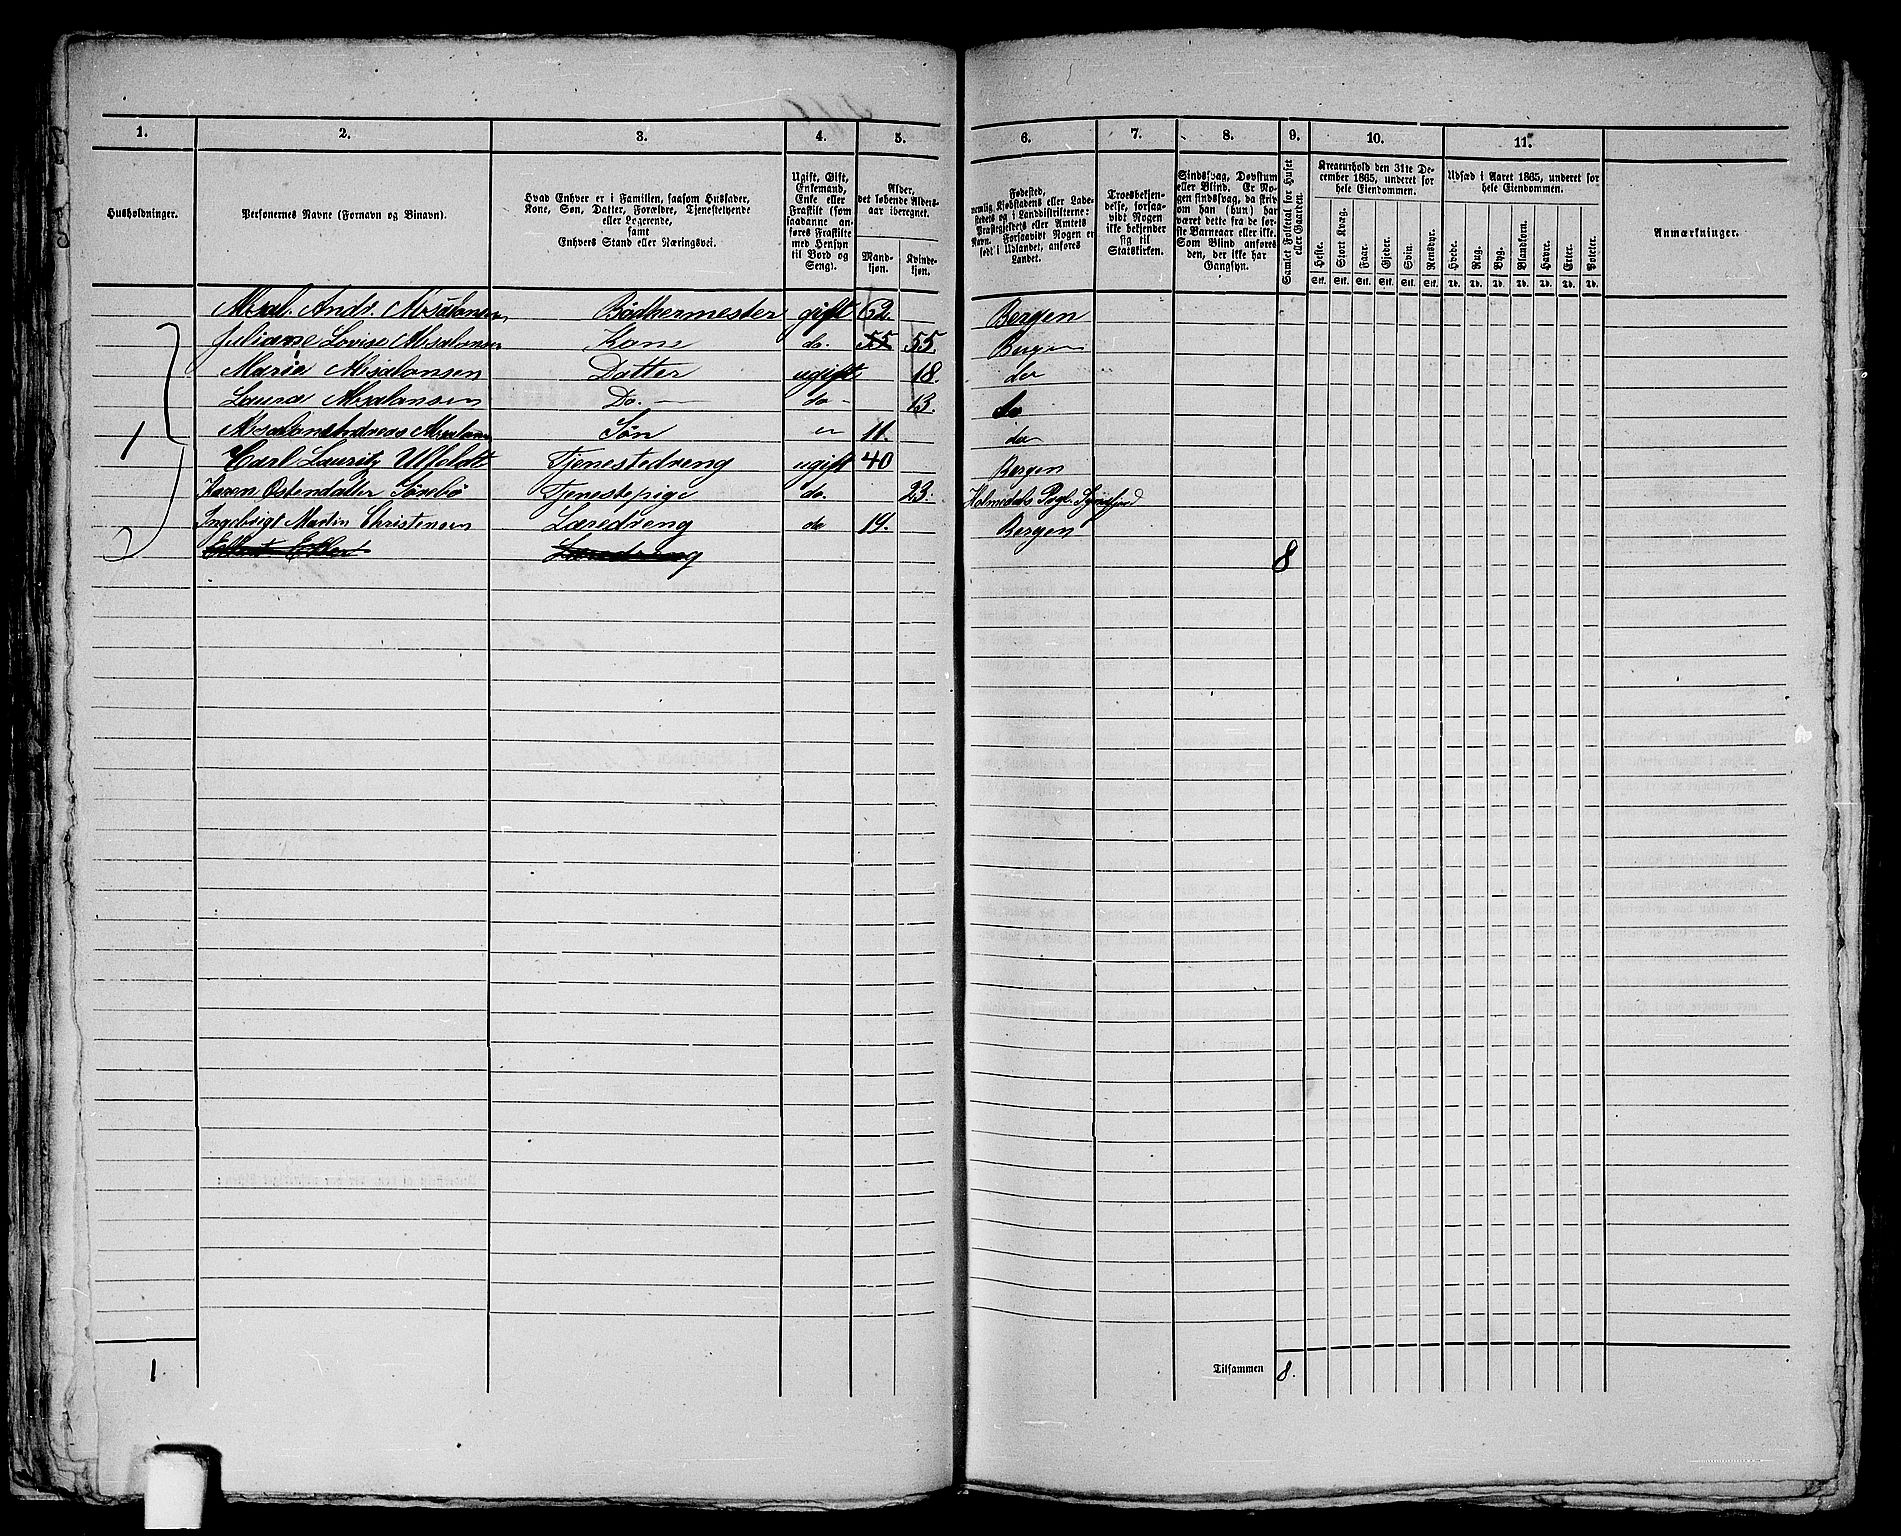 1. 2. 3. 4. 5. 6. 7. 8. 9. 10. 11.
Husholdninger.
Personernes Navne (Fornavn og Binavn).
Hvad Enhver er i Familien, saasom Husfader,
Kone, Søn, Datter, Forældre, Tjenestetyende
eller Logerende,
samt
Enhvers Stand eller Næringsvei.
Ugift, Gift,
Enkemand,
Enke eller
Fraskilt (som
saadanne an-
føres Fraskilte
med Hensyn
til Bord og
Seng).
Alder,
det løbende Alders-
aar iberegnet.
Mand-
kjøn.
Kvinde-
kjøn.
Fødested,
nemlig Kjøbstadens eller Lade-
stedets og i Landdistrikterne:
Præstegjeldets eller Amtets
Navn. Forsaavidt Nogen er
født i Udlandet, anføres
Landet.
Troesbekjen-
delse, forsaa-
vidt Nogen
ikke bekjender
sig til
Statskirken.
Sindssvag, Døvstum
eller Blind. Er No-
gen sindssvag, da skriv
om han (hun) har
været dette fra de før-
ste Barneaar eller ikke.
Som Blind anføres
den, der ikke har
Gangsyn.
Samlet Folketal for Huset
eller Gaarden.
Kreaturhold den 31te De-
cember 1865, anført for
hele Eiendommen.
Heste. Stort Kvæg. Faar. Gjeder. Svin. Rensdyr.
Stk. Stk. Stk. Stk. Stk. Stk.
Udsæd i Aaret 1865, anført for
hele Eiendommen.
Hvede. Rug. Byg. Blandkorn. Havre. Erter. Poteter.
Td. Td. Td. Td. Td. Td. Td.
Anmærkninger.
Absal. Ands. Absalonsen Bödkermester gift 62. Bergen
Juliane Lovise Absalonsen Kone do. 55 55. Bergen
Marie Absalonsen Datter ugift 18. do
Laura Absalonsen Do. do 13. do
1 Absalon Andreas Absalonsen Søn 11. do
Carl Lauritz Ulfoldt Tjenestedreng ugift 40 Bergen
Karen Ostendatter Sörebö Tjenestepige do. 23. Holmedals Pgl. Søndfjord
Ingebrigt Martin Christensen Læredreng do 19. Bergen
Læredreng 8
1 Tilsammen 8.